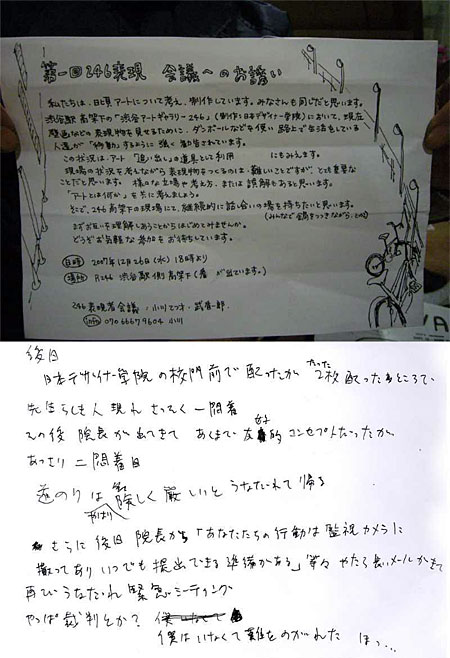 第一回246表現 会議へのお誘い
私たちは、日頃アートについて考え、制作しています。みなさんも同じだと思います。
渋谷駅高架下の「渋谷アートギャラリー246」(制作:日本デザイナー学院)において、現在
壁画などの表現物を見せるために、ダンボールなどを使い路上で生活をしている
人達が「移動」するように強く勧告されています。
この状況は、アート「追い出し」の道具として利用 にもみえます。
現場の状況を考えながら表現物をつくるのは、難しいことですが、とても重要な
ことだと思います。様々な立場や考え方、または誤解もあると思います。
「アートとは何か」を共に考えましょう。
そこで、246高架下の現場にて、継続的に話し合いの場を持ちたいと思います。
(みんなで鍋をつきながら、とか)
まずお互いを理解しあうことからはじめてみませんか。
どうぞお気軽な参加をお待ちしています。
日時 2007年12月26日(水) 18時より
場所 R246 渋谷駅側高架下( が出ています。)
246表現者会議:小川てつオ、武盾一郎
info 070 6667 9604 小川
後日
日本デザイナー学院の校門前で配ったが たった2枚配ったところで、
先生らしき人現れさっそく一悶着
その後院長が出てきて あくまで友好的コンセプトだったが、
あっさり二悶着目
道のりは やはり険しく厳しいとうなだれて帰る
さらに後日院長から「あなたたちの行動は監視カメラに
撮ってありいつでも提出できる準備がある」等々やたら長いメールがきて
再びうなだれ緊急ミーティング
やっぱ裁判とか?
僕はいなくて難をのがれた ほっ…